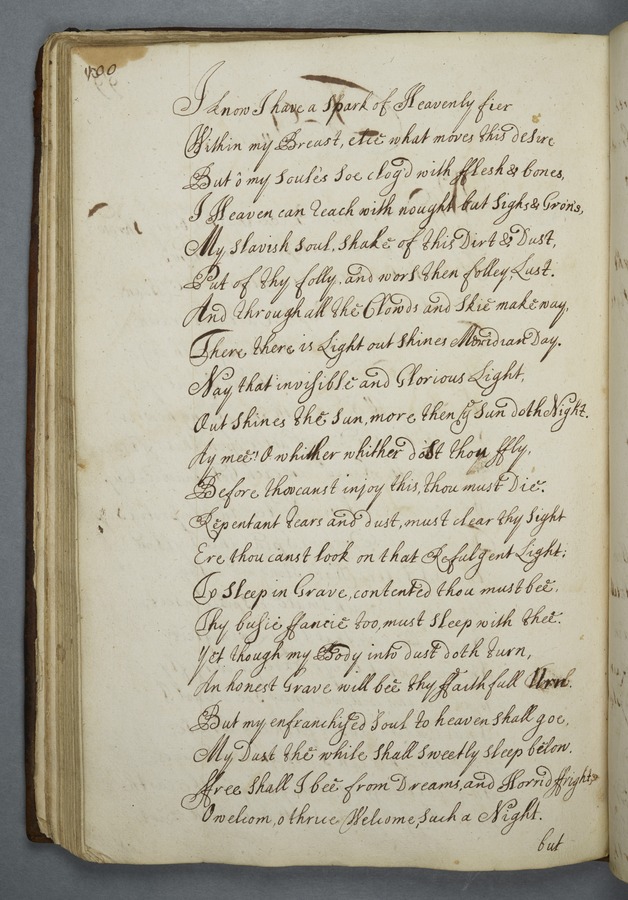 I know I have a spark of Heavenly fier
Within my Breast, elce what moves this desire
But ô my Soule's Soe clog'd with fflesh & bones,
I Heaven can reach with nought but Sighs & Grôns,
My slavish soul, shake of this Dirt & Dust,
Put of thy folly, and wors then folley, Lust.
And through all the Clowds and Skie make way,
There there is Light out shines Meridian Day.
Nay that invisible and Glorious Light,
Out shines the Sun, more then ye Sun doth Night.
Ay mee! O whither whither dost thou ffly,
Before thou canst injoy this, thou must Die.
Repentant tears and dust, must clear thy Sight
Ere thou canst look on that Refulgent Light;
To Sleep in Grave, contented thou must bee,
Thy busie ffancie too, must Sleep with thee.
Yet though my Body into dust doth turn,
An honest Grave will bee thy ffaithfull Urn.
But my enfranchised Soul to heaven shall goe,
My Dust the while shall Sweetly sleep below.
ffree shall I bee from Dreams, and Horrid ffrights
O welcom, o thrice Welcome, Such a Night.
but